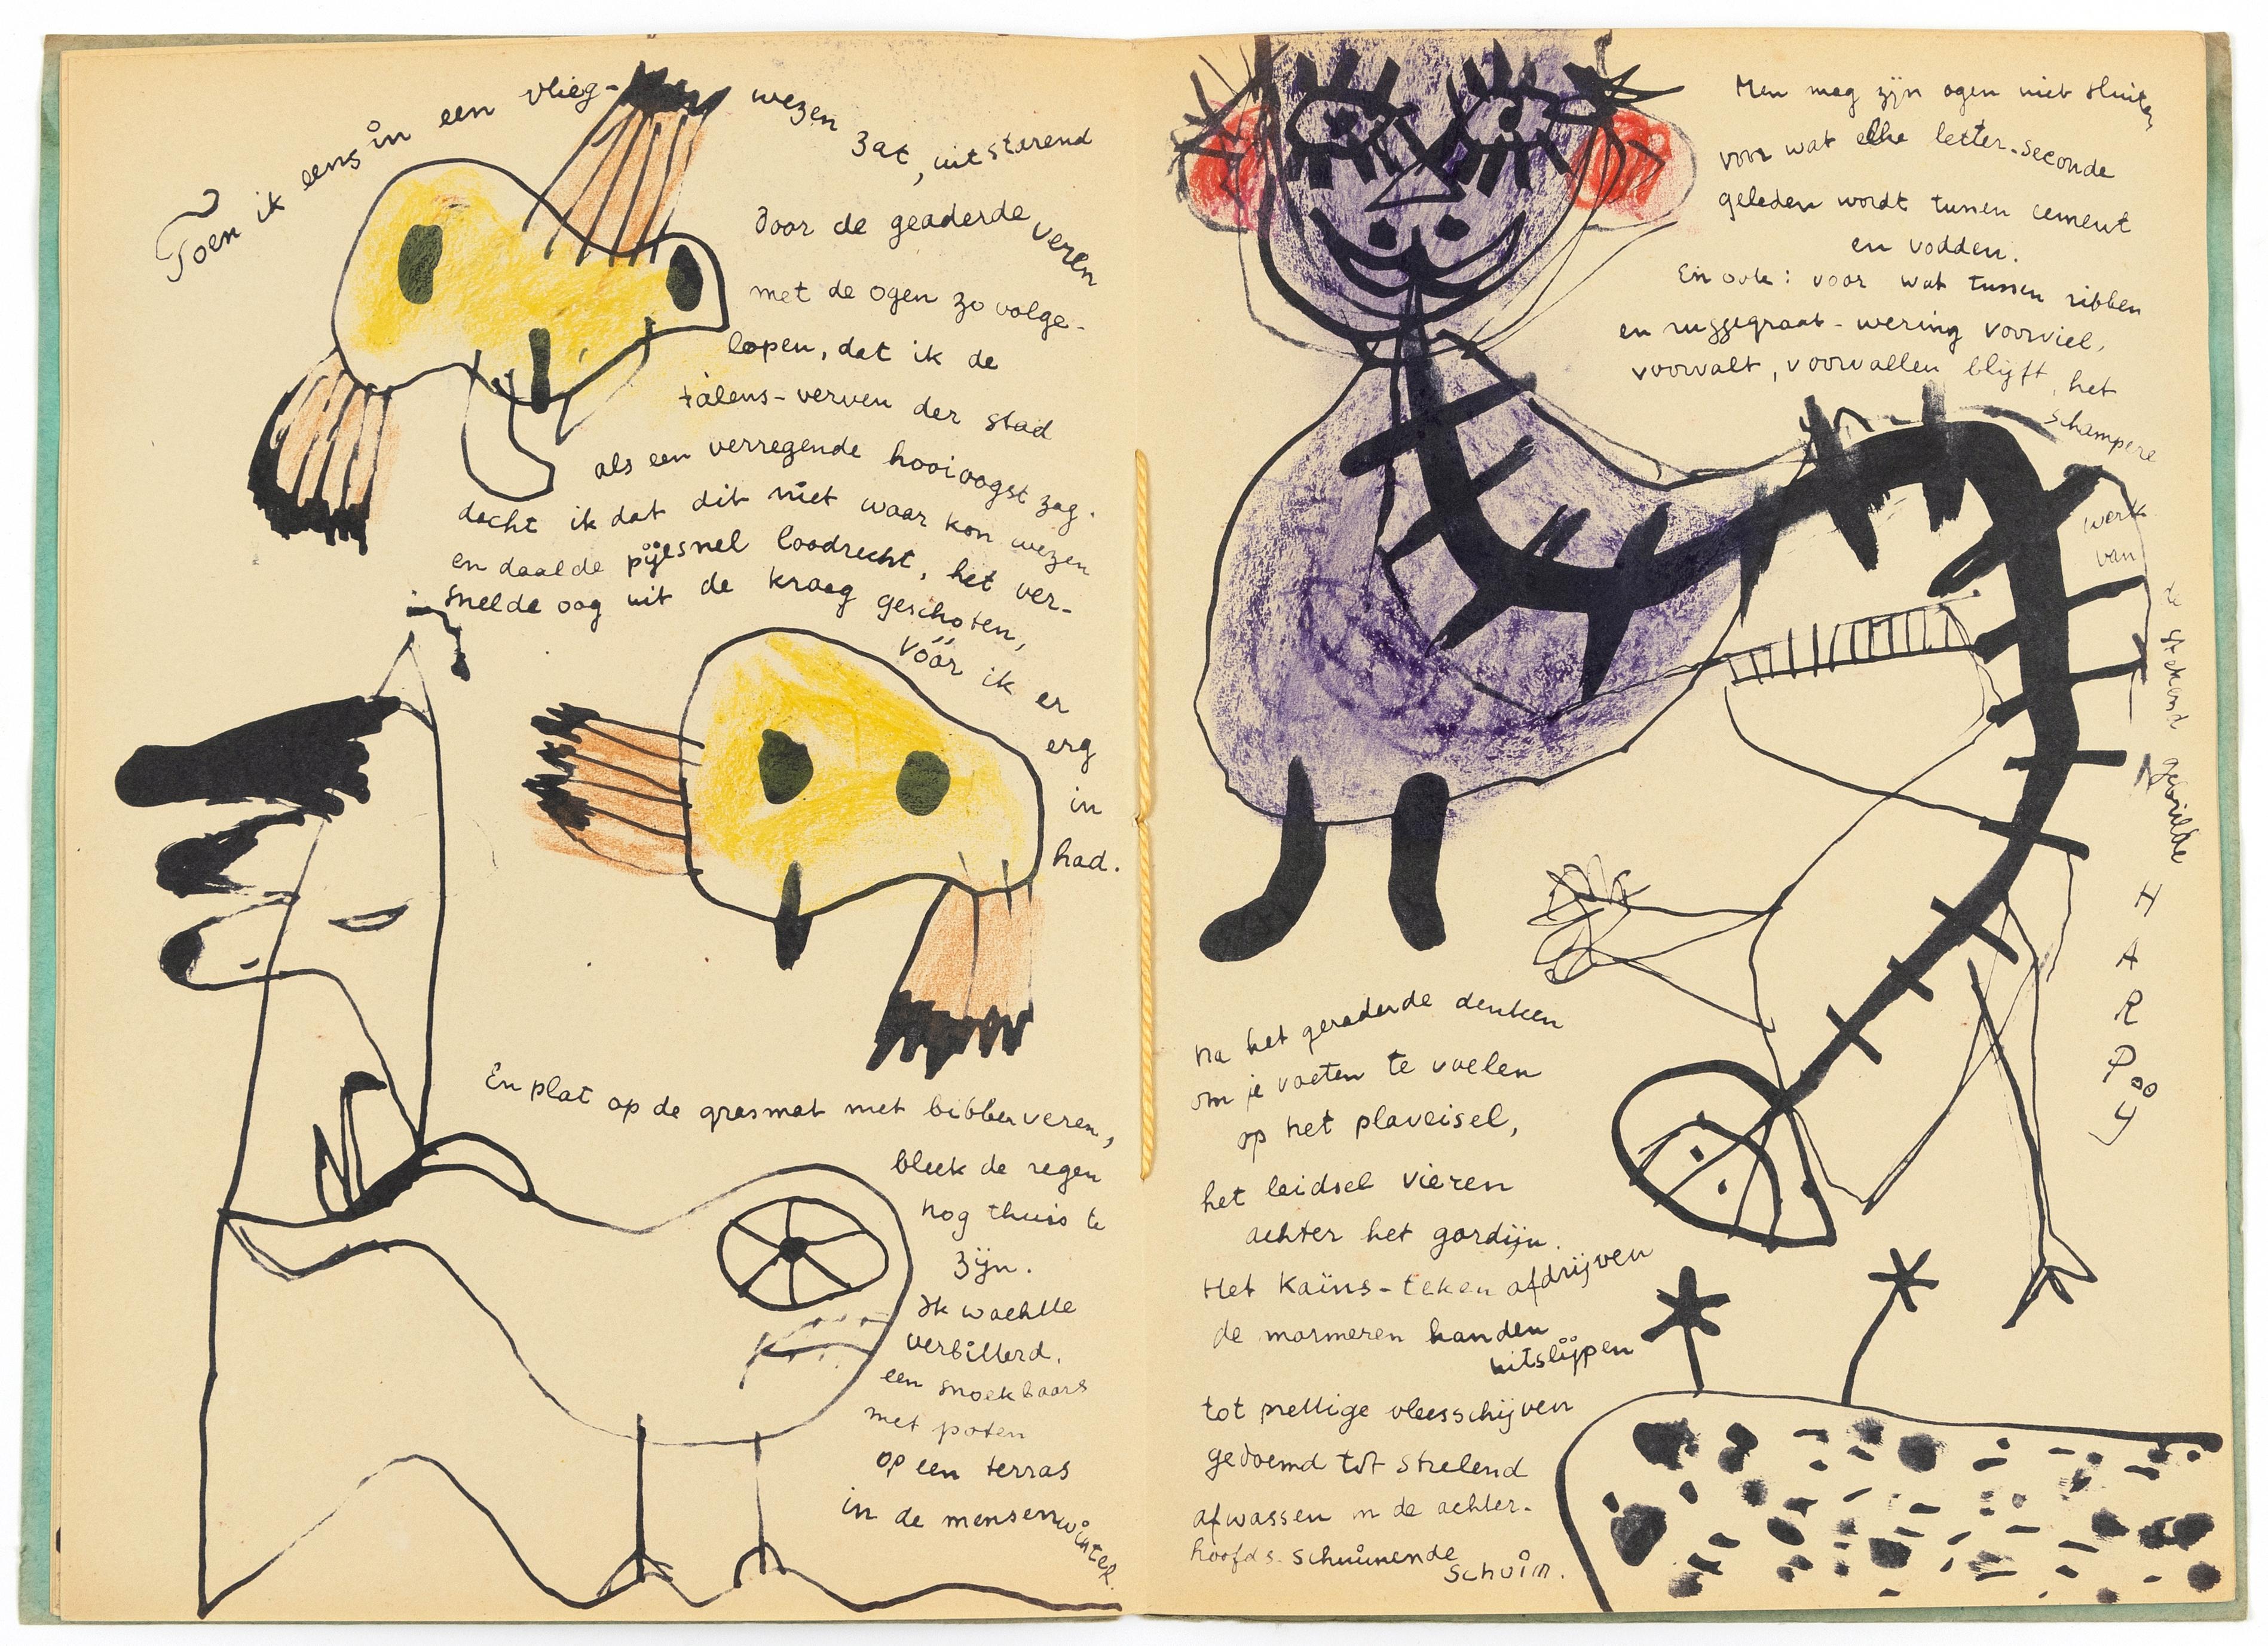 Toen ik eens in een vlieg-wezen zat, uitstarend
door de geaderde veren
met de ogen zo volge-
lopen, dat ik de
tàlens-verven der stad
als een verregende hooioogst zag.
dacht ik dat dit niet waar kon wezen
en daalde pijlsnel loodrecht, het ver-
snelde oog uit de kraag geschoten,
vóór ik er
erg
in
had.
En plat op de grasmat met bibberveren,
bleek de regen
nog thuis te
zijn.
Ik wachtte
verbitterd.
een snoekbaars
met poten
op een terras
in de mensenwinter.
Men mag zijn ogen niet sluiten
voor wat elke letter-seconde
geleden wordt tussen cement
en vodden.
En ook: voor wat tussen ribben
en ruggegraat-wering voorviel,
voorvalt, voorvallen blijft, het
schampere
werk
van
de stekend
gebrilde
HARPOOY
na het geraderde denken
om je voeten te voelen
op het plaveisel,
het leidsel vieren
achter het gordijn.
Het kaïns-teken afdrijven
de marmeren handen
uitslijpen
tot prettige vleesschijven
gedoemd tot strelend
afwassen in de achter-
hoofds-schuimende
schuim.